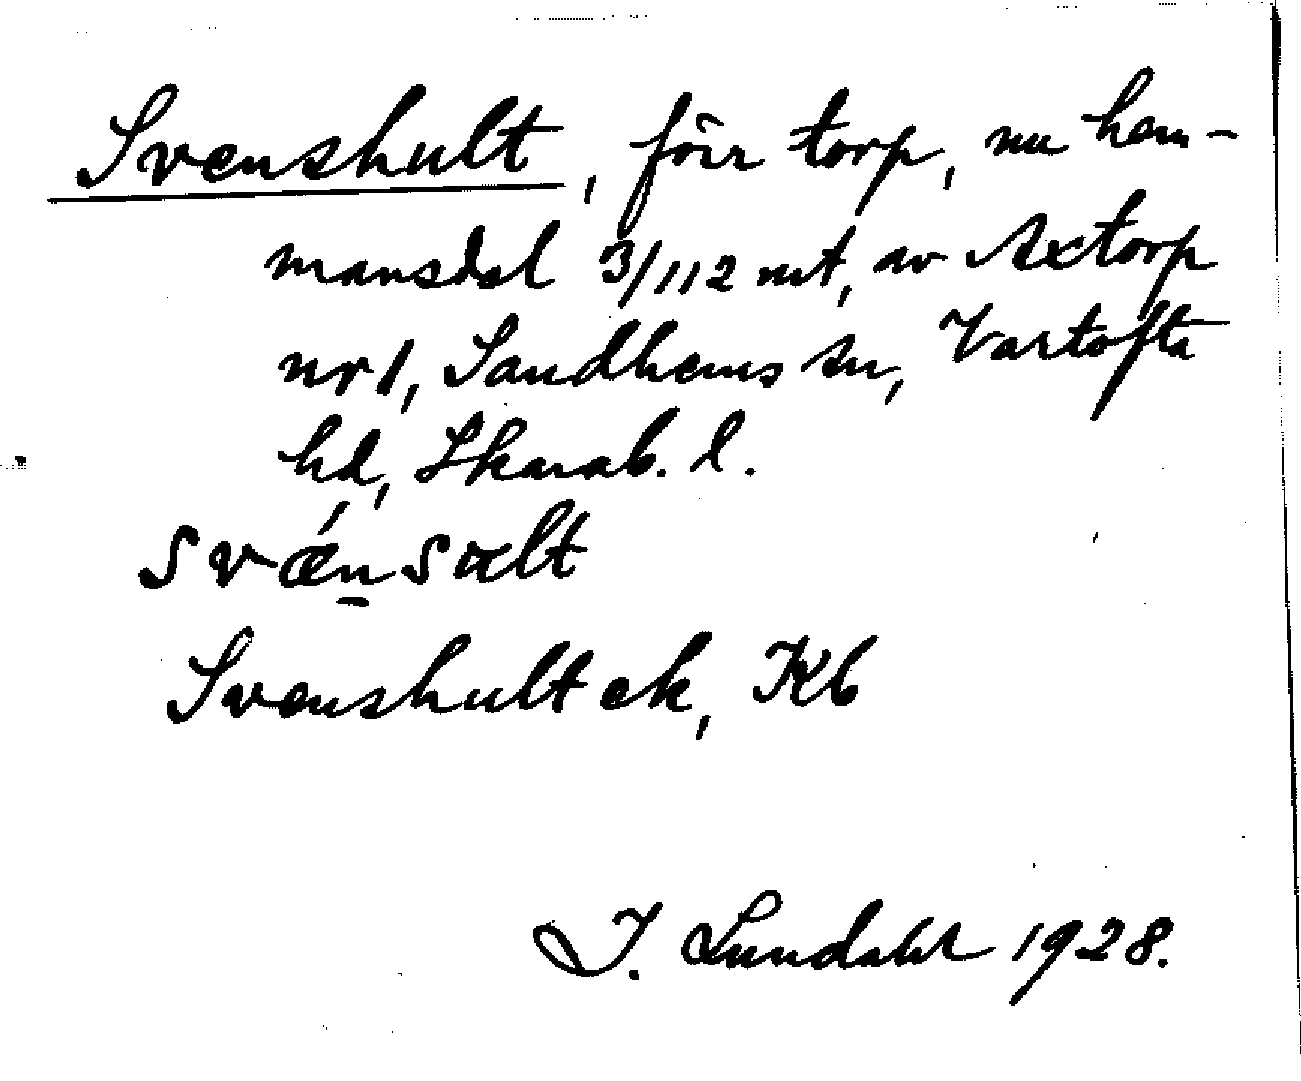 Svenshult, förr torp, nu hem-
mansdel 3/112 mt, av Axtorp
nr 1, Sandhems sn, Vartofta
hd, Skarab. l.
svǽn̲sɑlt
Svenshult ek, Kb
I. Lundahl 1928.